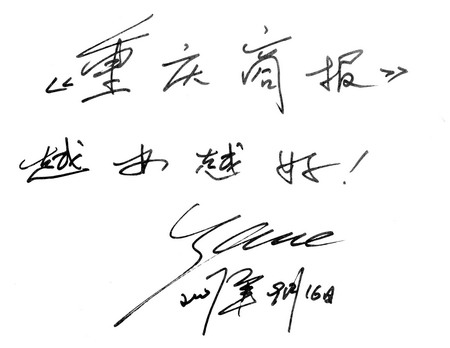 《重庆商报》
越办越好!
2007年9月16日